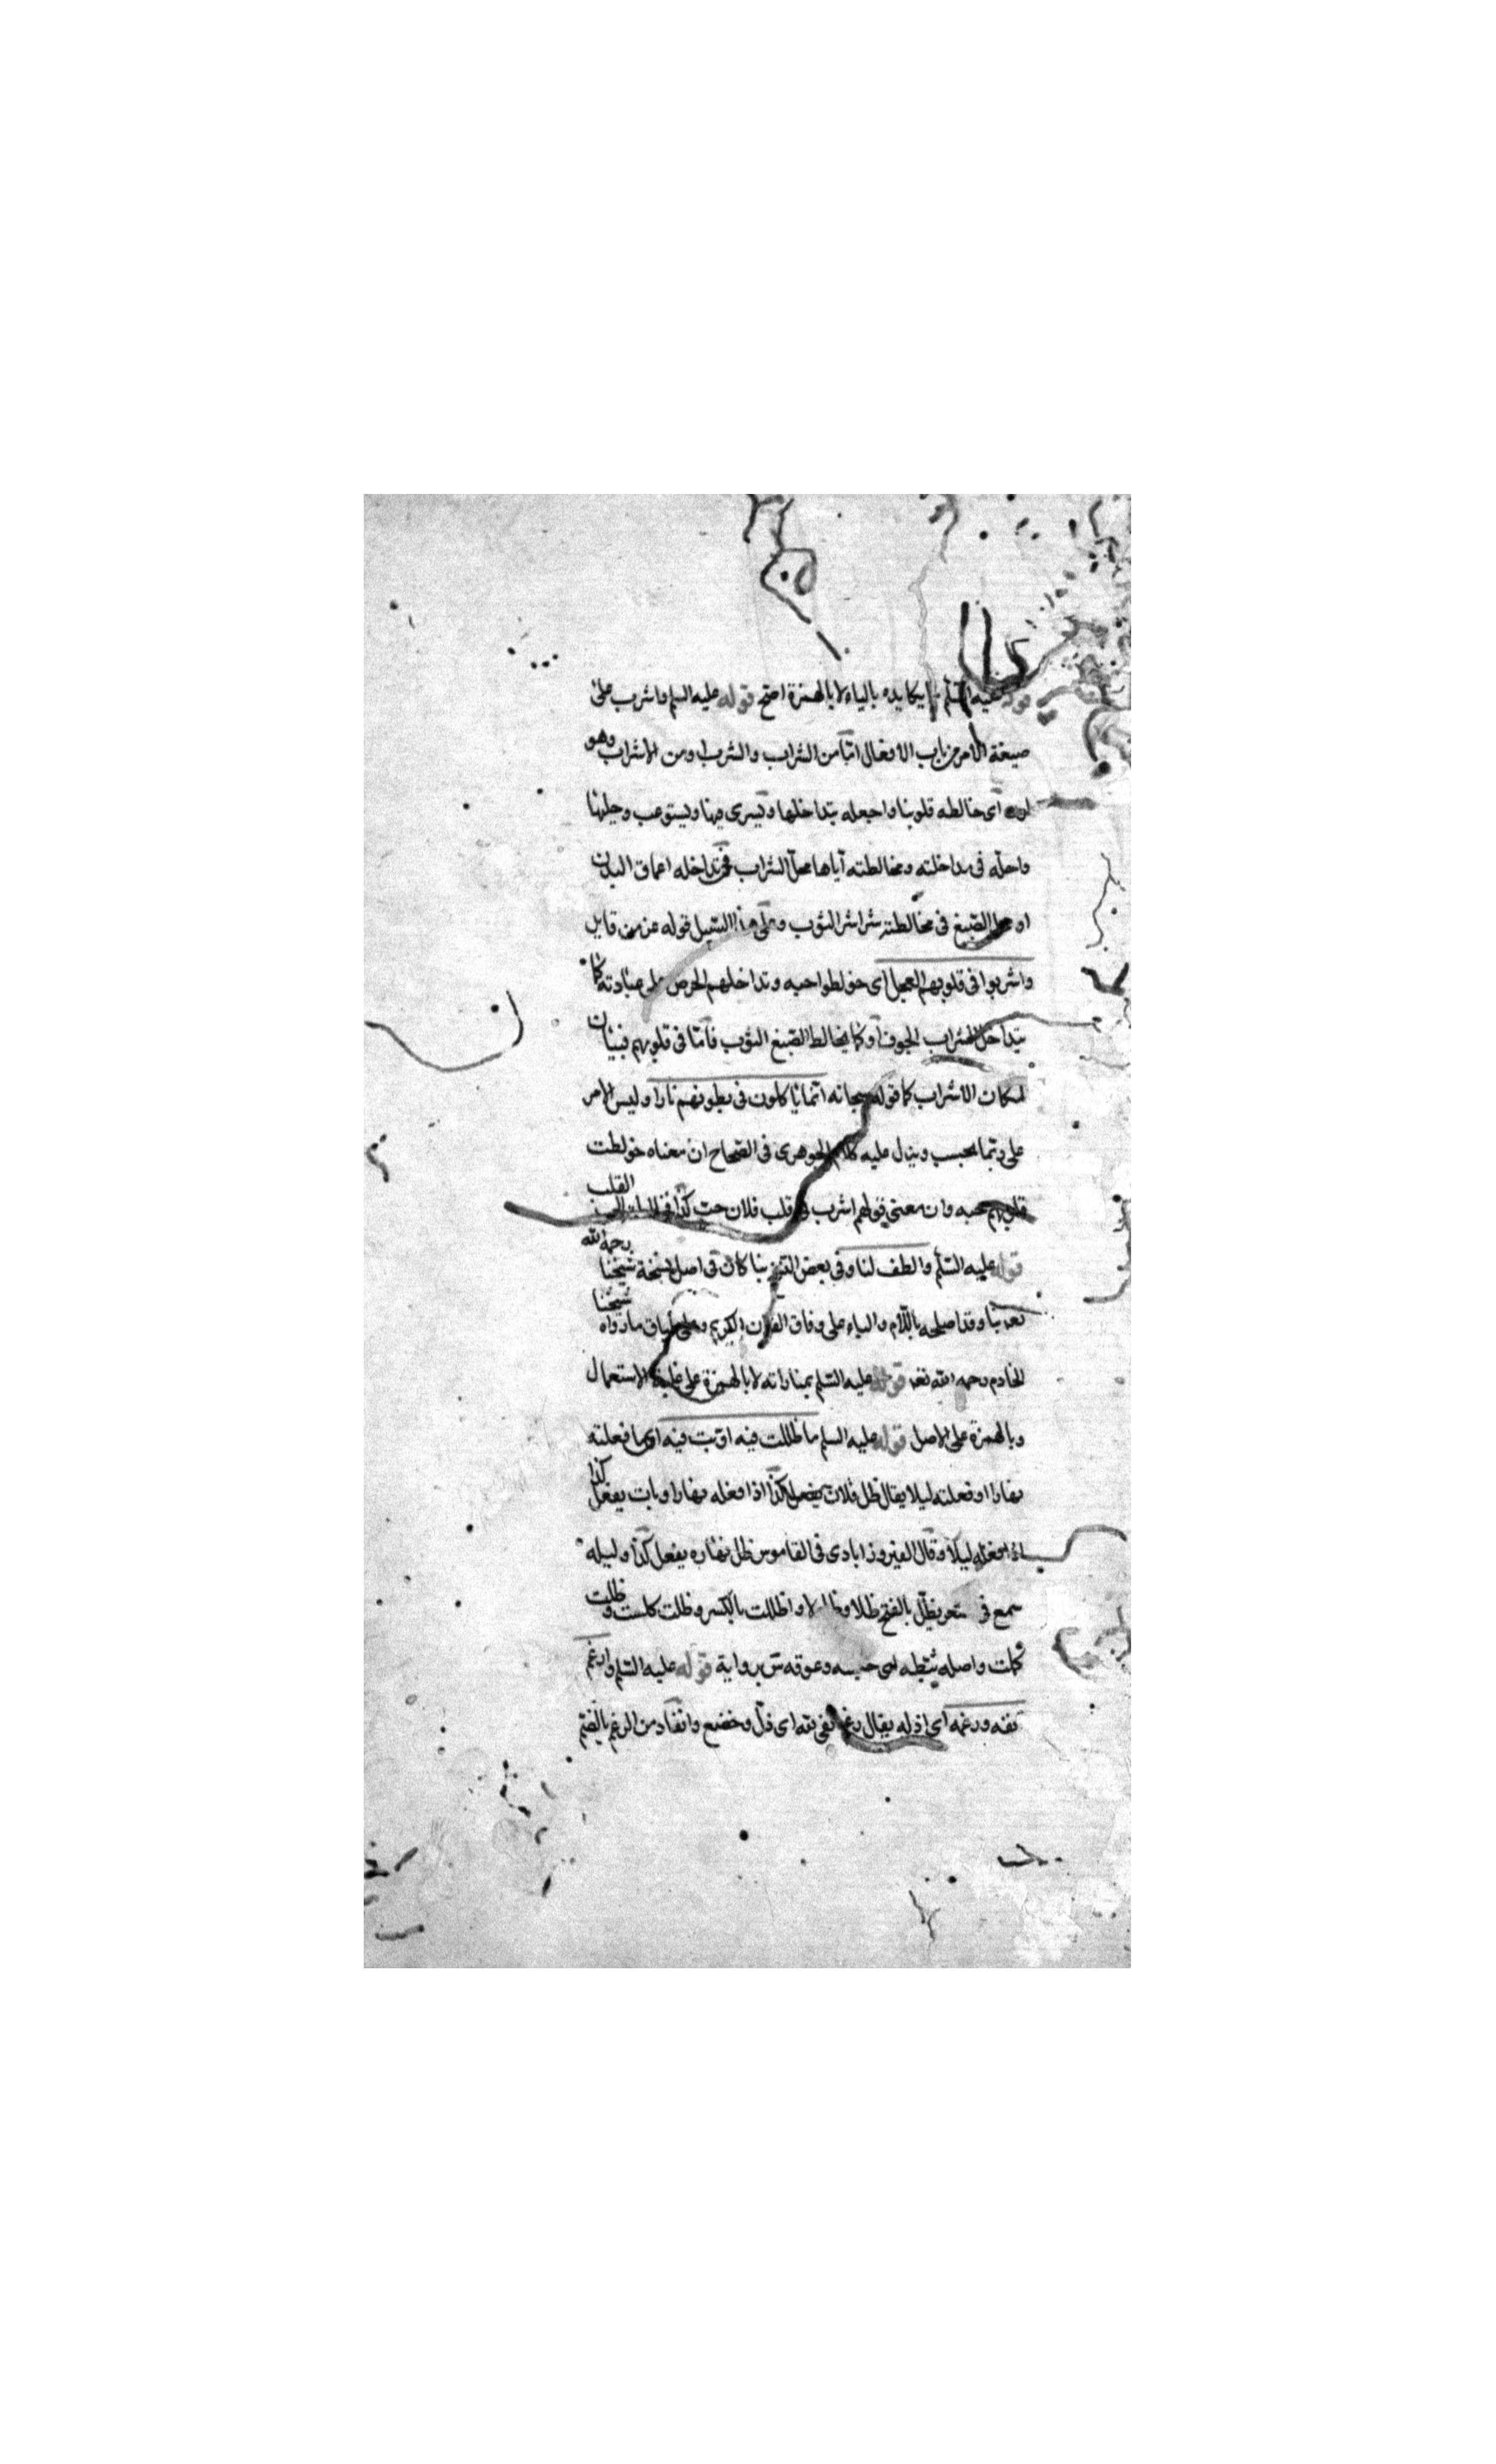 قوله عليه السلم يكايده بالياء لا بالهمزة اصح قوله عليه السلم واشرب على
صيغة الامر من باب الافعال اما من الشراب والشرب او من الاشراب وهو
لون اى خالطه قلوبنا واجعله يتداخلها ويسرى فيها ويستوعب
واحله فى مداخلته ومخالطته اياها محل الشراب فى تداخله اعماق البدن
او محل الصبغ فى مخالطته شراشر الثوب وعلى هذا السبيل قوله عز من قايل
واشربوا فى قلوبهم العجل اى خولطوا حبه وتداخلهم الحرص على عبادته كما
يتداخل الشراب الجوف او كما يخالط الصبغ الثوب فاما فى قلوبهم فبيان
لمكان الاشراب كما قوله سبحانه انما ياكلون فى بطونهم نارا وليس الامر
على ربما يحسب وينزل عليه كلام الجوهرى فى الصحاح ان معناه خولطت
قلوبهم حبه وان معنى قولهم اشرب فى قلب فلان حب كذا القلب
قوله عليه السلم والطف لنا وفى بعض النسخ بنا كان فى اصل نسخة شيخنا رحمه الله
بنا وقد اصلحه باللام والباء على وفاق القران الكريم وعلى طباق ما رواه شيخنا
الخادم رحمه الله قوله عليه السلم بمناراته لا بالهمزة على غلبة الاستعمال
وبالهمزة على الاصل قوله عليه السلم ما ظللت فيه او بت فيه اى ما فعلته
نهارا او فعلته ليلا يقال ظل فلان يفعل كذا اذا فعله نهارا وبات يفعل كذا
اذا فعله ليلا وقال الفيروزابادى فى القاموس ظل نهاره يفعل كذا وليله
سمع فى شعر يظل بالفتح ظلا وظلولا واظللت بالكسر وظلت كلست وظلت
كملت واصله ثبطه اى حبسه وعوقه س برواية قوله عليه السلم وارغم
نفه ورغمه اى اذله يقال رغم انفى لله اى ذل وخضع وانقاد من الرغم بالضم